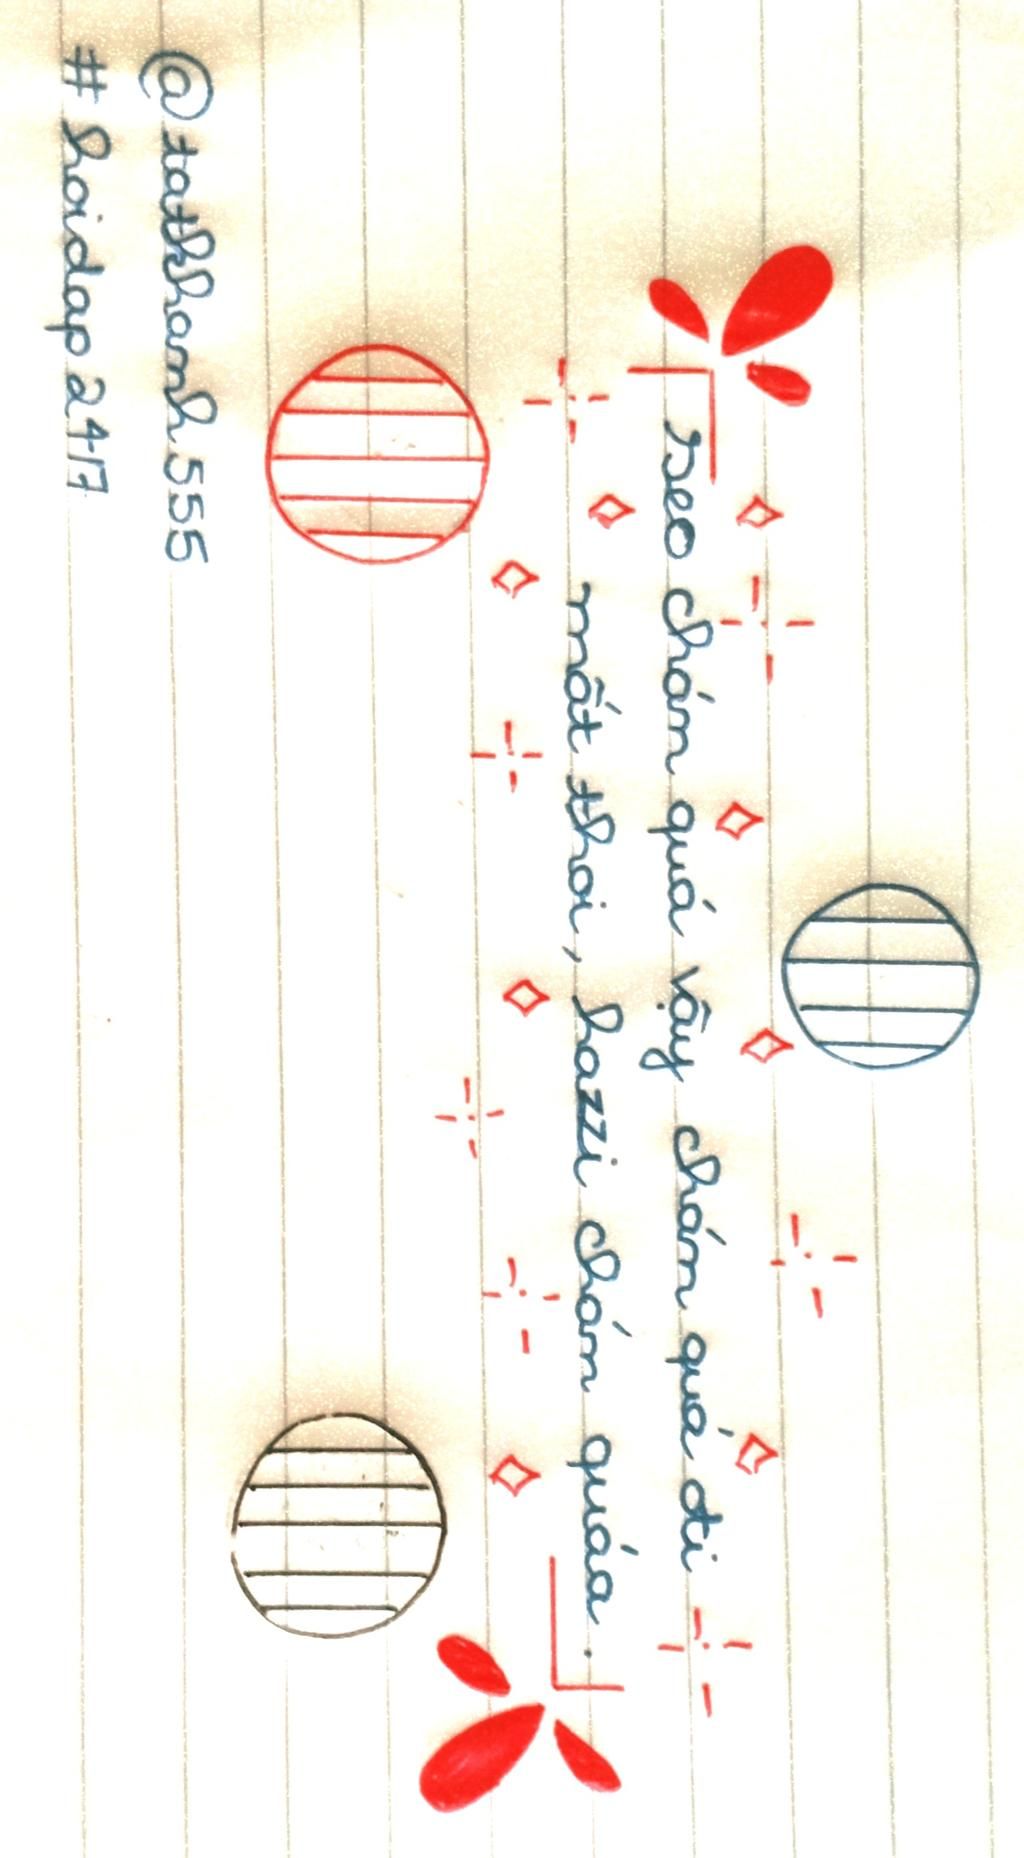 seo chán quá vậy chán quá đi
mất thoi, hazzi chán quáa.
@tathhanh555
#hoidap247